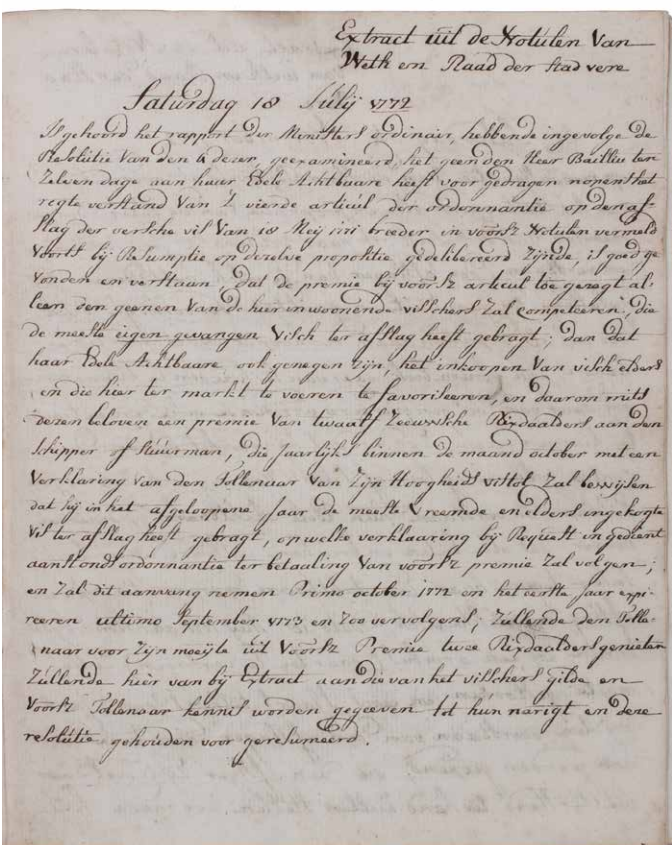 Extract uit de Notúlen Van
Weth en Raad der stad vere
Saturdag 18 Júlij 1772
Is gehoord het rapport der Ministers ordinair, hebbende ingevolge de
Resolutie Van den 4 dezer, geexamineerd, het geen den Heer Bailliu ten
Zelven dage aan haar Edele Achtbaare heeft voor gedragen nopens het
regte verstand Van 't vierde articúl der ordonnantie op den af-
slag der versche vis Van 18 Meij 1771 breeder in voorsz Notulen vermeld
Voorts bij Resumptie op dezelve propositie gedelibereerd Zijnde, is goed ge
vonden en verstaan, dat de premie bij voorsz articul toe gezegt al-
leen den geenen Van de hier inwoonende visschers Zal competeeren, die
de meeste eigen gevangen Visch ter afslag heeft gebragt; dan dat
haar Edele Achtbaare, ook genegen Zijn, het inkoopen Van visch elders
en die hier ter markt te voeren te favoriseeren, en daarom mits
dezen beloven een premie Van twaalf Zeeuwsche Rixdaalders aan den
schipper of stúúrman, die Jaarlijks binnen de maand october met een
Verklaring Van den Tollenaar Van Zijn Hoogheids vistol Zal bewijsen
dat hij in het afgeloopene Jaar de meeste Vreemde en elders ingekogte
Vis ter afslag heeft gebragt, op welke verklaaring bij Request ingedient
aanstonds ordonnantie ter betaaling Van voorsz premie Zal volgen;
en Zal dit aanvang nemen Primo october 1772 en het eerste Jaar expi-
reeren ultimo September 1773 en Zoo vervolgens; Zúllende den Tolle-
naar voor Zijn moeijte uit Voorsz Premie twee Rixdaalders genieten
Zúllende hier van bij Extract aan die van het visschers Gilde en
Voorsz Tollenaar kennis worden gegeeven tot hún narigt en deze
resolútie gehouden voor geresumeerd.